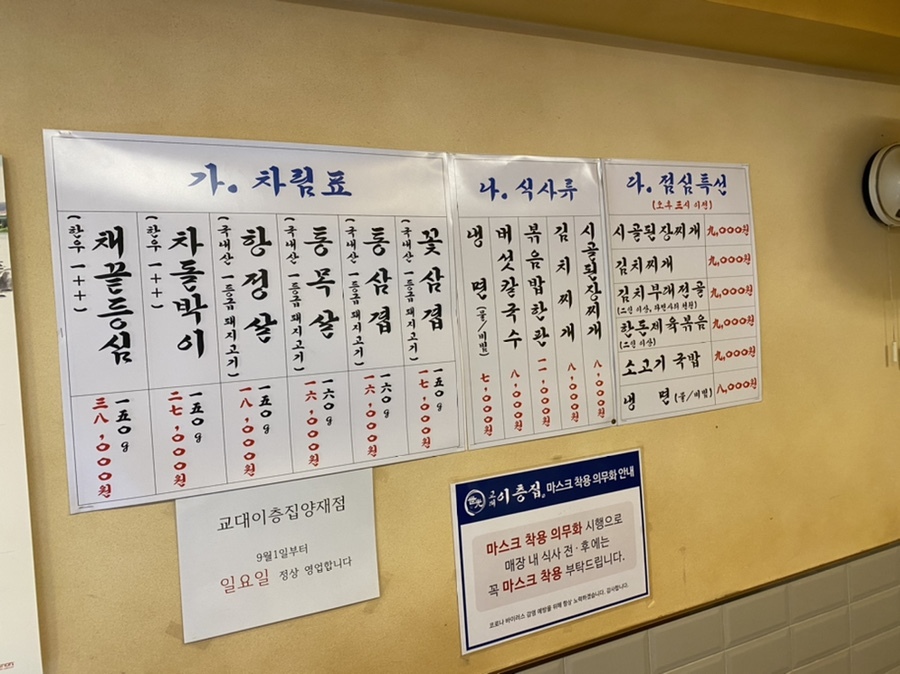 가. 차림표
꽃삼겹
(국내산 一등급 돼지고기)
一五○g
一七,○○○원
통삼겹
(국내산 一등급 돼지고기)
一六○g
一六,○○○원
통목살
(국내산 一등급 돼지고기)
一六○g
一六,○○○원
항정살
(국내산 一등급 돼지고기)
一五○g
一八,○○○원
차돌박이
(한우 一++)
一五○g
二七,○○○원
채끝등심
(한우 一++)
一五○g
三八,○○○원
나. 식사류
시골된장찌개
八,○○○원
김치찌개
八,○○○원
볶음밥한판
一一,○○○원
버섯칼국수
八,○○○원
냉면(물/비빔)
七,○○○원
다. 점심특선
시골된장찌개 九,○○○원
김치찌개 九,○○○원
김치부대전골 九,○○○원
한돈제육볶음 九,○○○원
(二인 이상)
소고기 국밥 九,○○○원
냉 면(물/비빔) 八,○○○원
교대이층집양재점
9월1일부터
일요일 정상 영업합니다
교대 이층집 마스크 착용 의무화 안내
마스크 착용 의무화 시행으로
매장 내 식사 전·후에는
꼭 마스크 착용 부탁드립니다.
코로나 바이러스 감염 예방을 위해 항상 노력하겠습니다. 감사합니다.